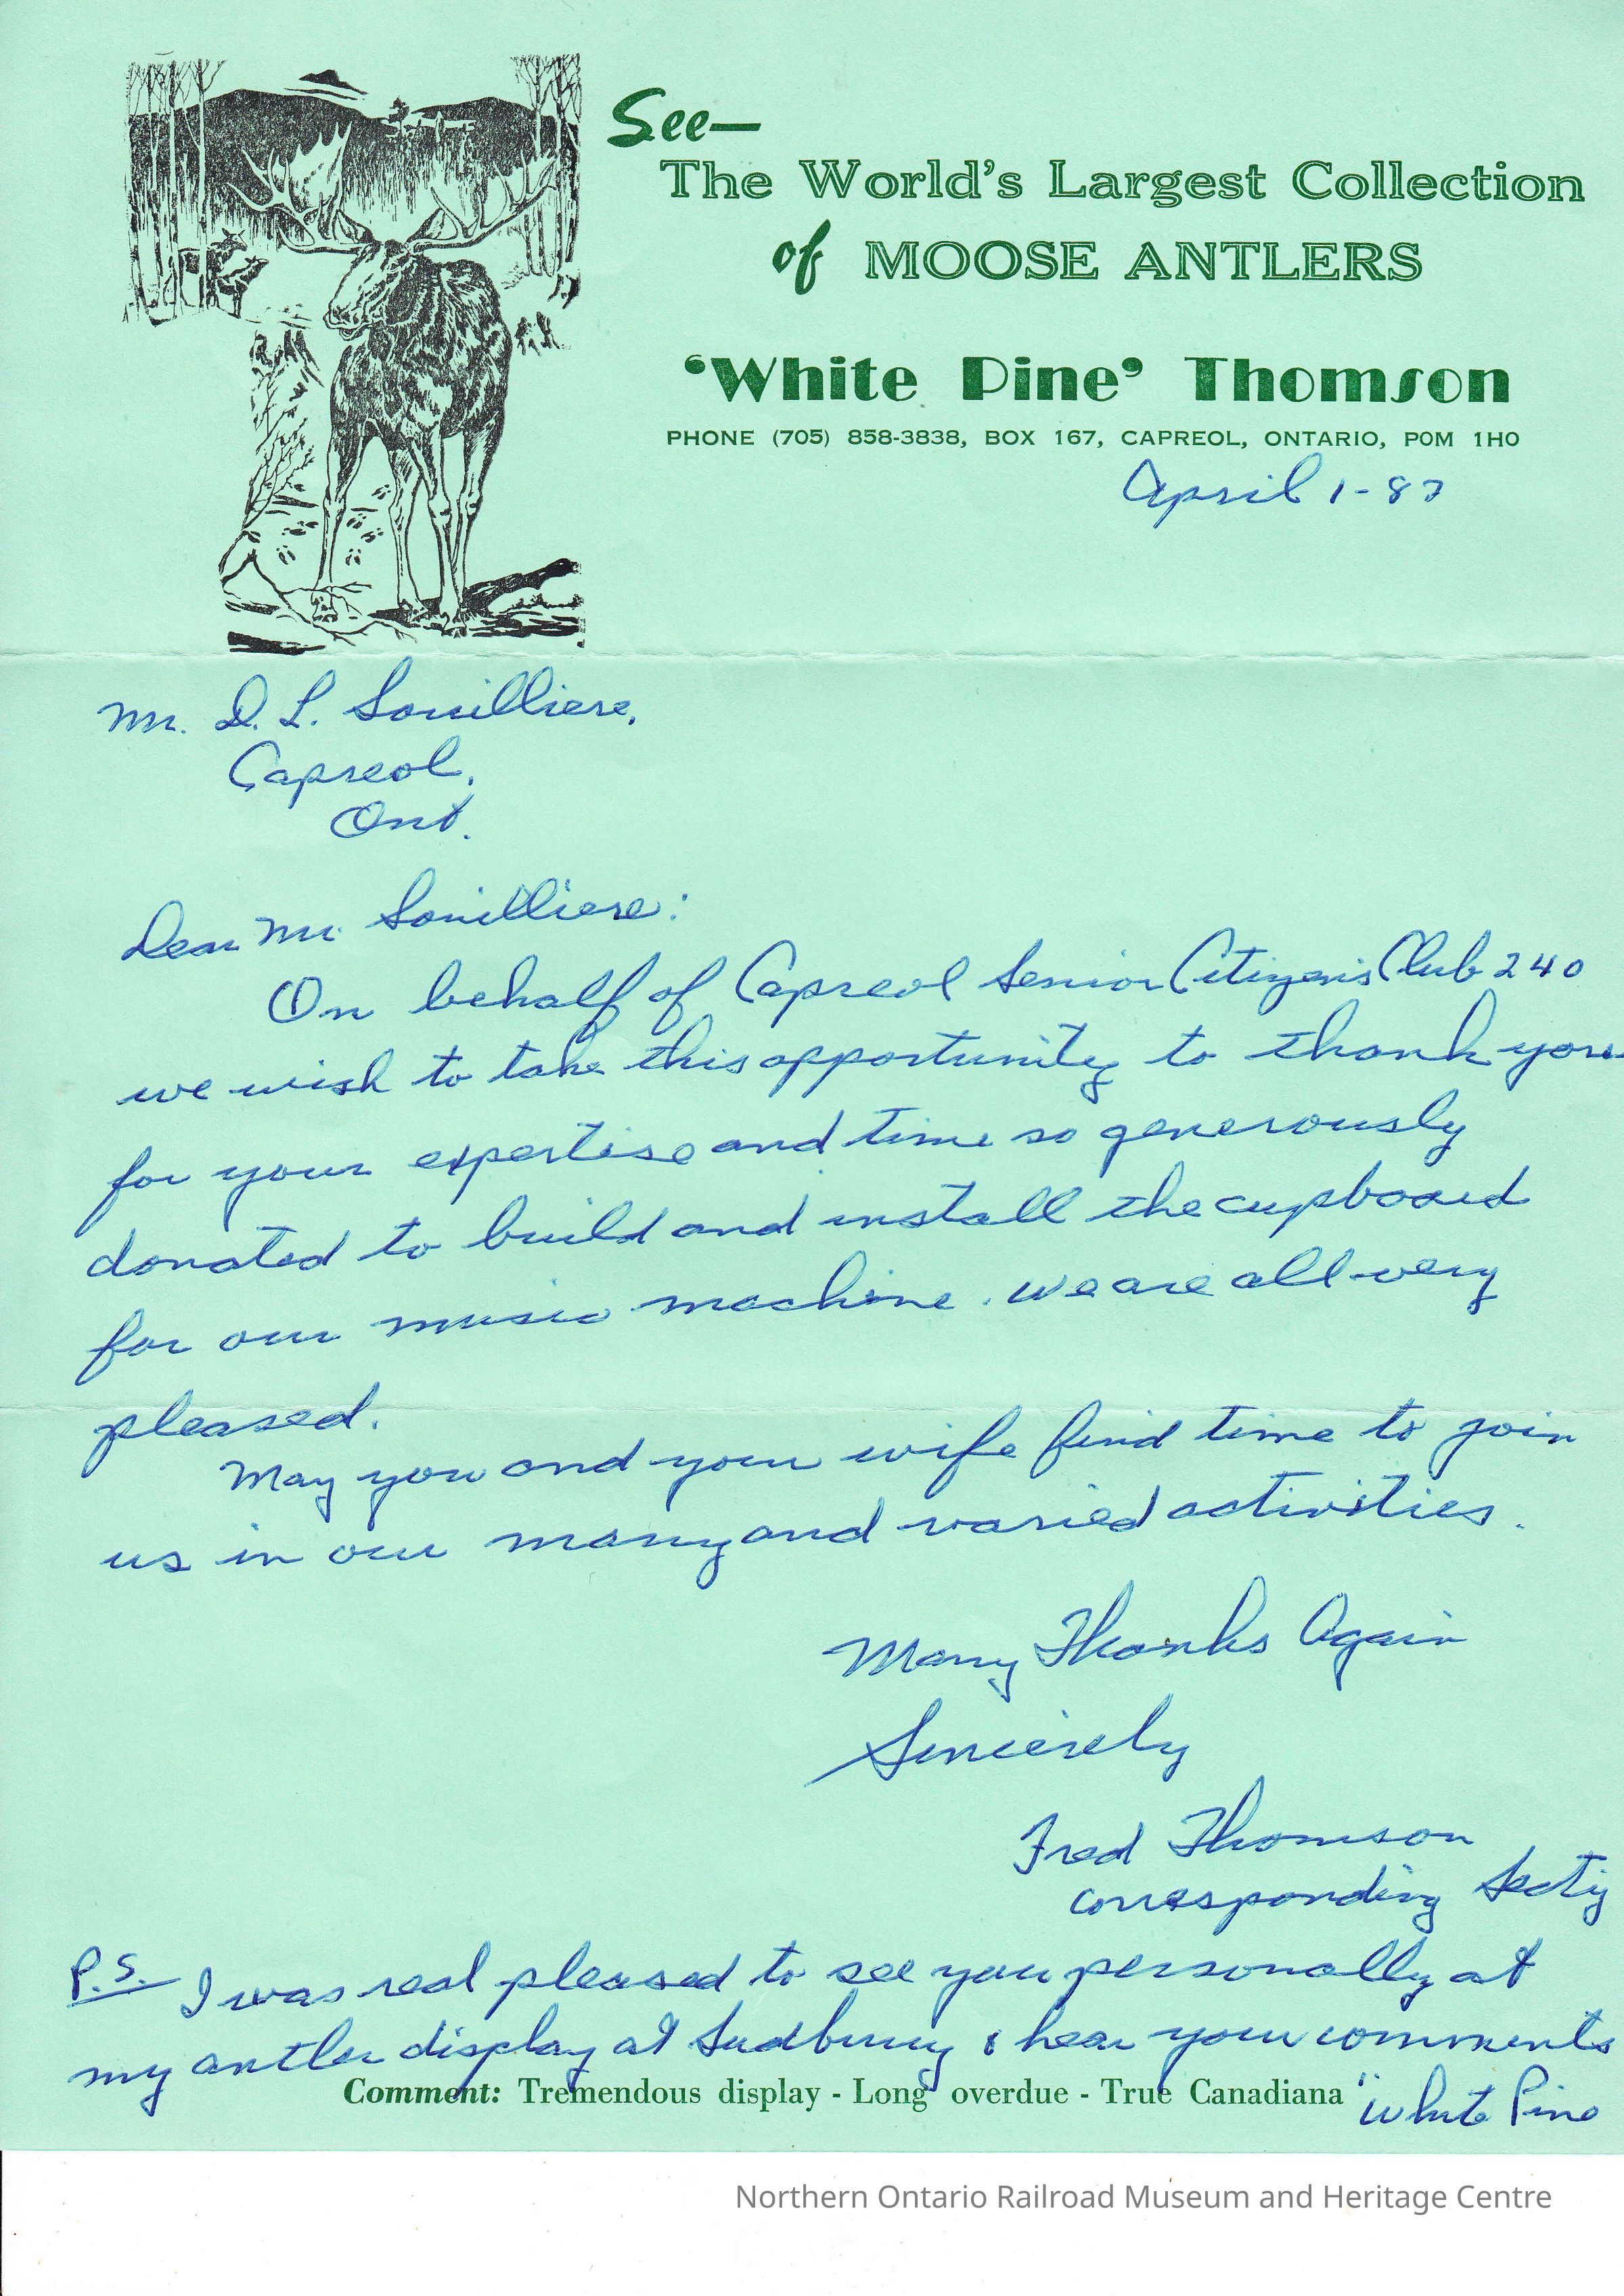 See—
The World's Largest Collection
of MOOSE ANTLERS
'White Pine' Thomson
PHONE (705) 858-3838, BOX 167, CAPREOL, ONTARIO, POM 1HO
April 1-87
Mr. D. L. Souilliere,
Capreol,
Ont.
Dear Mr. Souilliere:
On behalf of Capreol Senior Citizens Club 240
we wish to take this opportunity to thank you
for your expertise and time so generously
donated to build and install the cupboard
for our music machine. We are all very
pleased.
May you and your wife find time to join
us in our many and varied activities.
Many Thanks Again
Sincerely
Fred Thomson
Corresponding Sect'y
P.S. I was real pleased to see you personally at
my antler display at Sudbury & hear your comments
Comment: Tremendous display - Long overdue - True Canadiana
"White Pine
Northern Ontario Railroad Museum and Heritage Centre